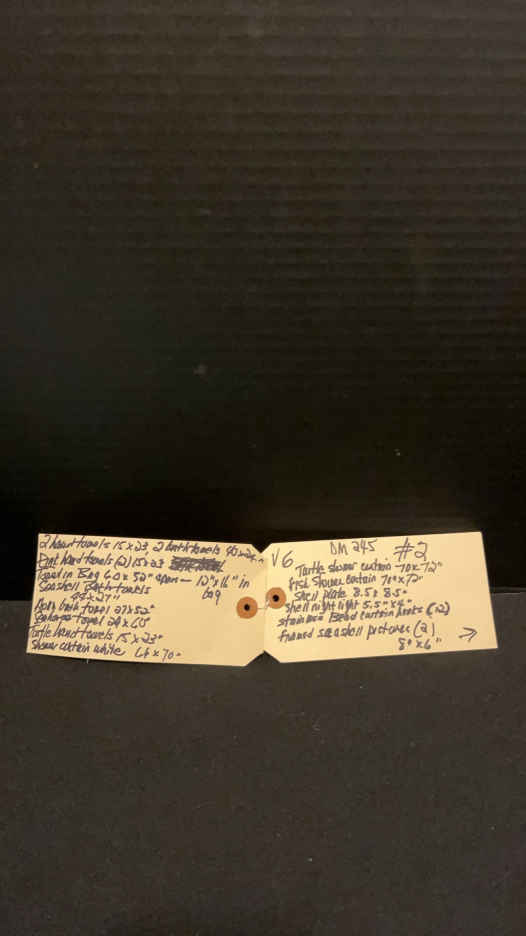 2 hand towels 15x23, 2 bath towels 40x24
Pink hand towels (2) 15x23
Towel in Bag 60x50" open — 12"x16" in
bag
Seashell Bath towels
27"
bath towel 27x52"
towel 29x60"
Turtle hand towels 15x23"
Shower curtain white 70"
V6 DM 245 #2
Turtle shower curtain 70x72"
Fish Shower curtain 70x72"
Shell plate 8.5x8.5"
Shell night light 5.5"x4"
Bead curtain hooks (12)
framed seashell pictures (2)
8"x6" →